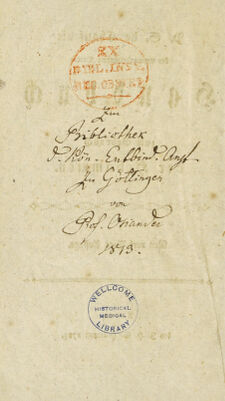 EX
BIBL. INST.
Zur
Bibliothek
d. Kön. Entbind. Anst
zu Göttingen
von
Prof. Osiander
1813.
WELLCOME
HISTORICAL
MEDICAL
LIBRARY